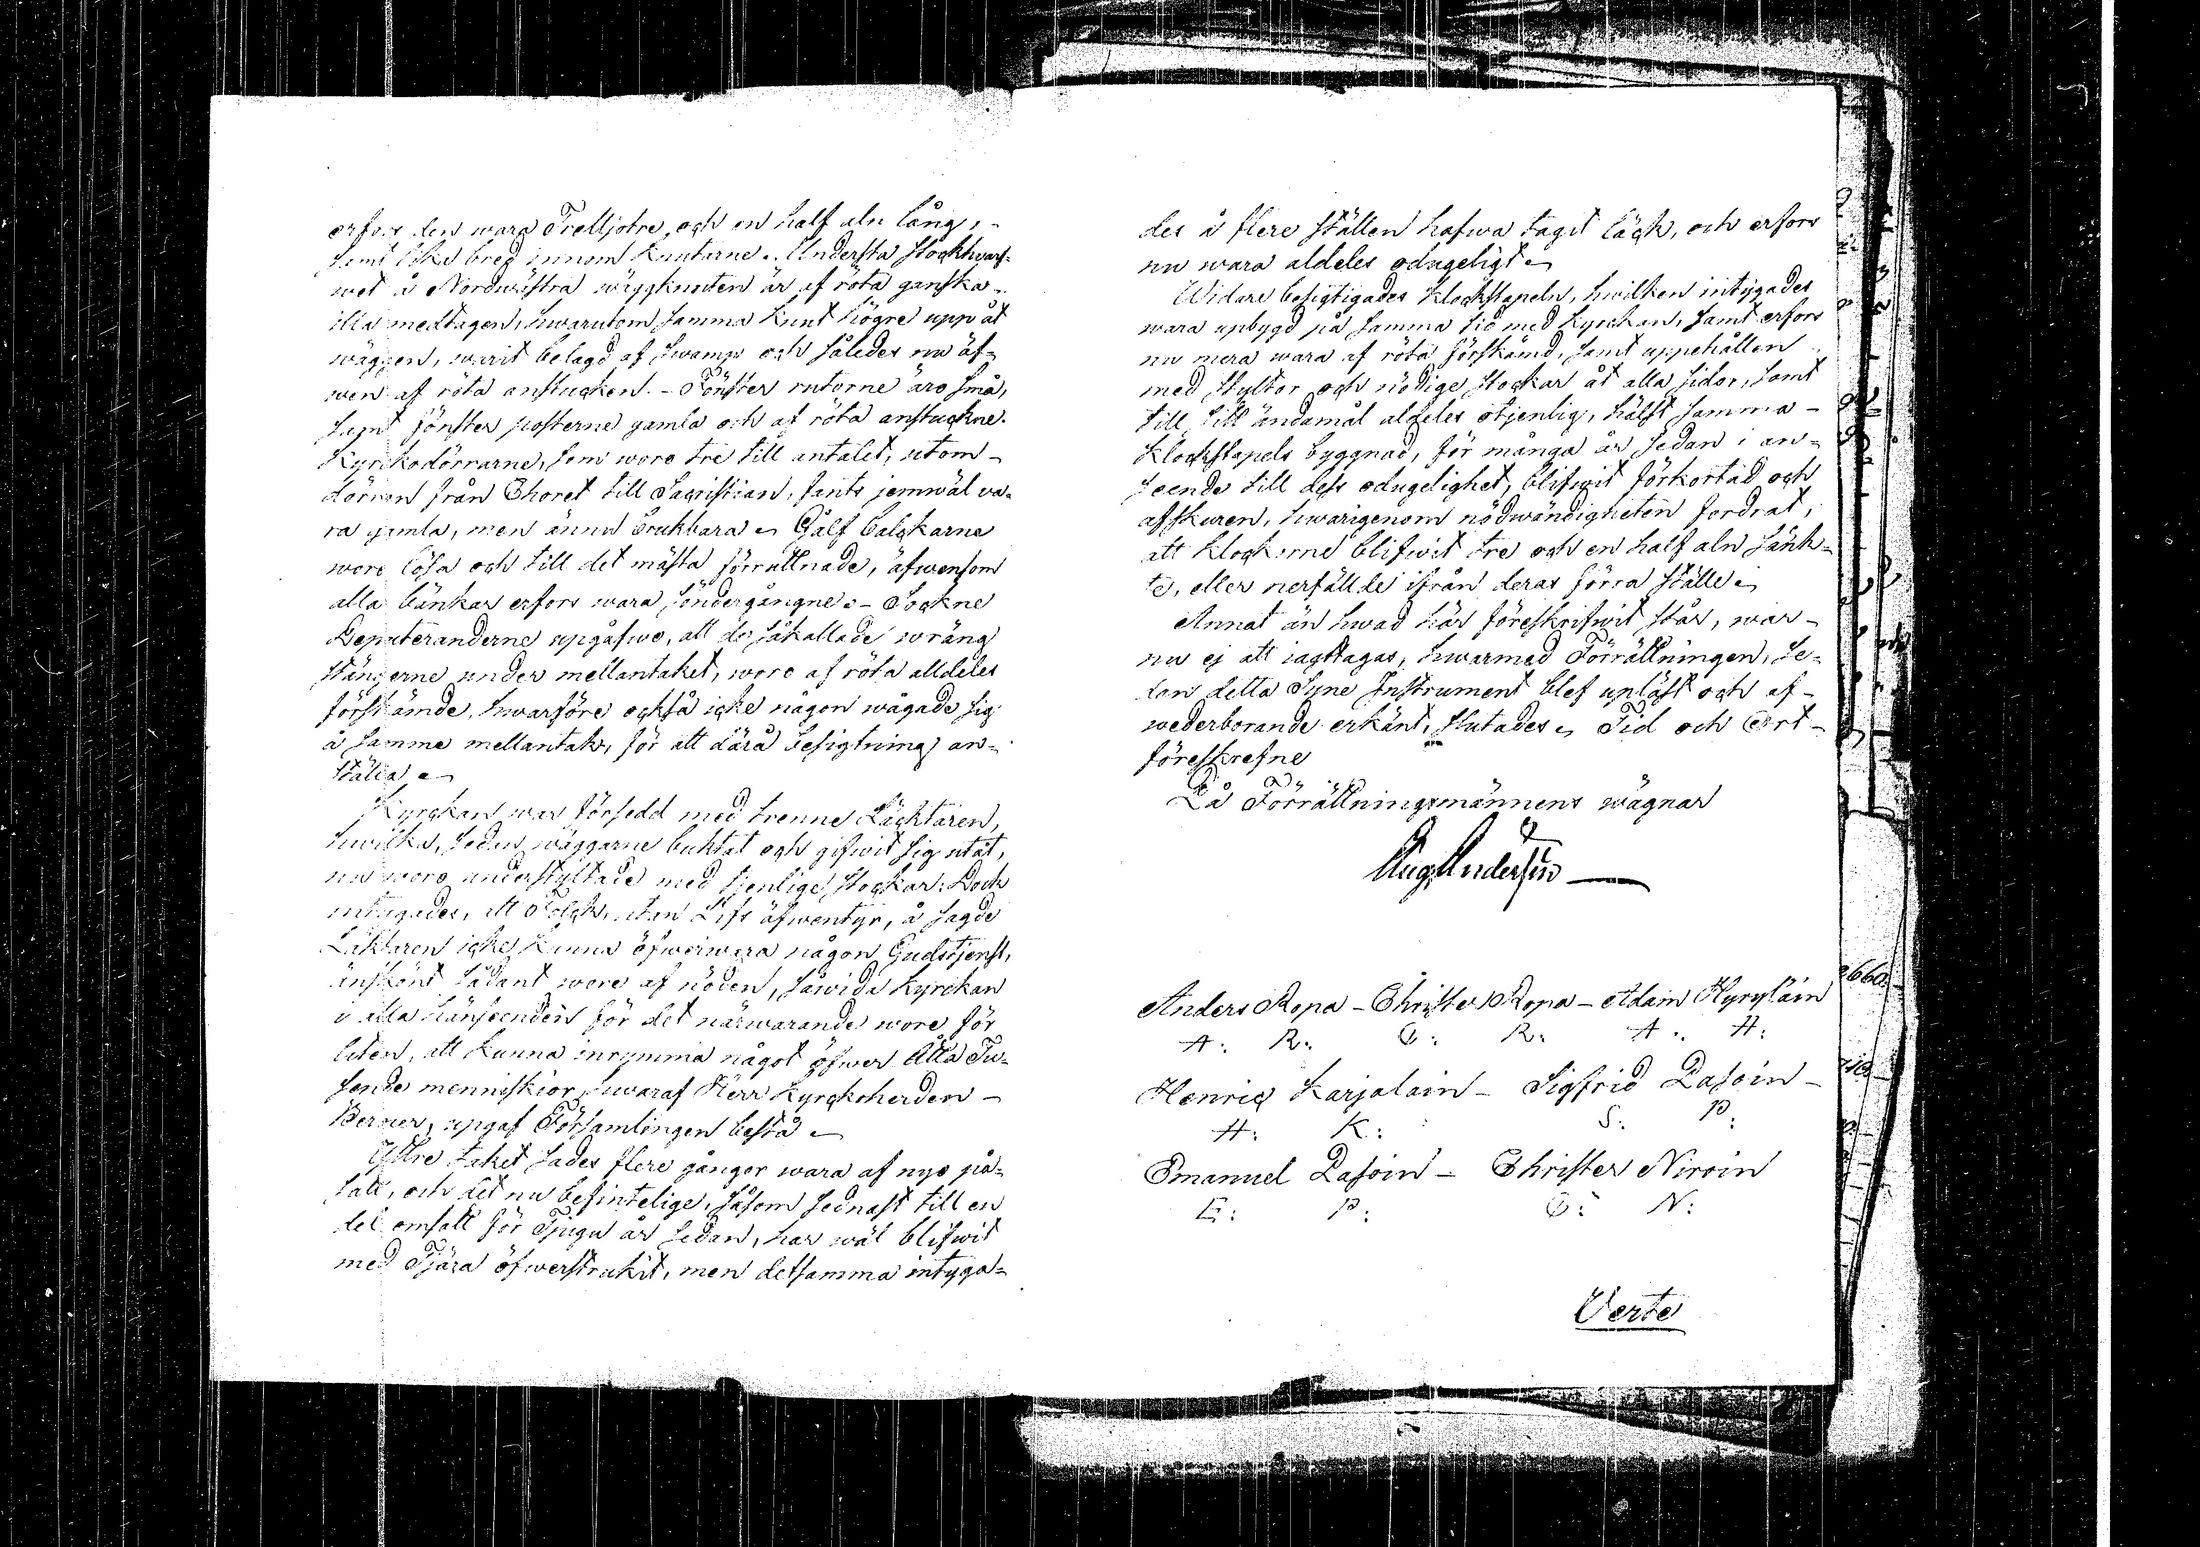 erfors den wara Trettjotre och en half aln lång,
samt lika bred innom knutarne. Understa stockhwarf-
wet å Nordwästra wäggknuten är af röta ganska
illa medtagen, hwarutom samma knut högre upp åt
wäggen, warit belagd af swamp och således nu äf-
wen af röta anstucken. - Fönster rutorne äro små,
samt fönster posterne gamla och af röta anstuckne.
Kyrckodörrarne, som woro tre till antalet, utom -
dörren från Choret till Sacristian, fants jemwäl va-
ra gamla, men ännu brukbara. Gålf balckarne
woro lösa och till det mästa förruttnade, äfwensom
alla bänkar erfors wara söndergångne. - Sockne
Deputeranderne upgåfwo, att de såkallade wräng
stängerne under mellantaket, woro af röta alldeles
förskämde, hwarföre också icke någon wågade sig
å samma mellantak, för att därå besigtning an-
ställa.
Kyrckan war försedd med trenne Läcktaren,
hwilka, sedan wäggarne buktat och gifwit sig utåt,
nu woro understyltade med tjenlige stockar: Dock
intygades, att Folck, utan Lifs äfwentyr, å sagde
Läktaren icke kunna öfwerwara någon Gudstjenst,
änskönt sådant wore af nöden, såwida Kyrckan
i alla hänseenden för det närwarande wore för
liten, att kunna inrymma något öfwer Åtta Tu-
sende menniskior, hwaraf Herr Kyrckoherden -
Berner, upgaf Församlingen bestå.
Yttre taket sades flere gånger wara af nyo på-
satt, och det nu befintelige, såsom sednast till en
del omsatt för Tjugu år sedan, har wäl blifwit
med Tjära öfwerstrukit, men detsamma intyga-
des å flere ställen hafwa tagit läck, och erfors
nu wara aldeles odugeligt.
Widare besigtigades Klockstapeln, hwilken intygades
wara upbygd på samma tid med Kyrckan, samt erfors
nu mera wara af röta förskämd, samt uppehållen
med styltor och nödige stockar åt alla sidor, samt
till sitt ändamål aldeles otjenlig, hälst samma -
Klockstapels byggnad, för många år sedan i an-
seende till dess odugelighet, blifwit förkortad och
afskuren, hwarigenom nödwändigheten fordrat,
att klockorne blifwit tre och en half aln sänk-
te, eller nerfällde ifrån deras förra ställe.
Annat än hwad här föreskrifwit står, war -
nu ej att iagttagas, hwarmed Förrättningen, se-
dan detta Syne Instrument blef upläst och af -
wederborande erkänt, slutades. Tid och Ort -
föreskrefne
På Förrättningsmännens wägnar
Aug Andersin
Anders Ropa - Christer Ropa - Adam Hyryläin
A: R: C: R: A: H:
Henric Karjalain - Sigfrid Pasoin -
H: K: S: P:
Emanuel Pasoin - Christer Niroin
E: P: C: N:
Verte